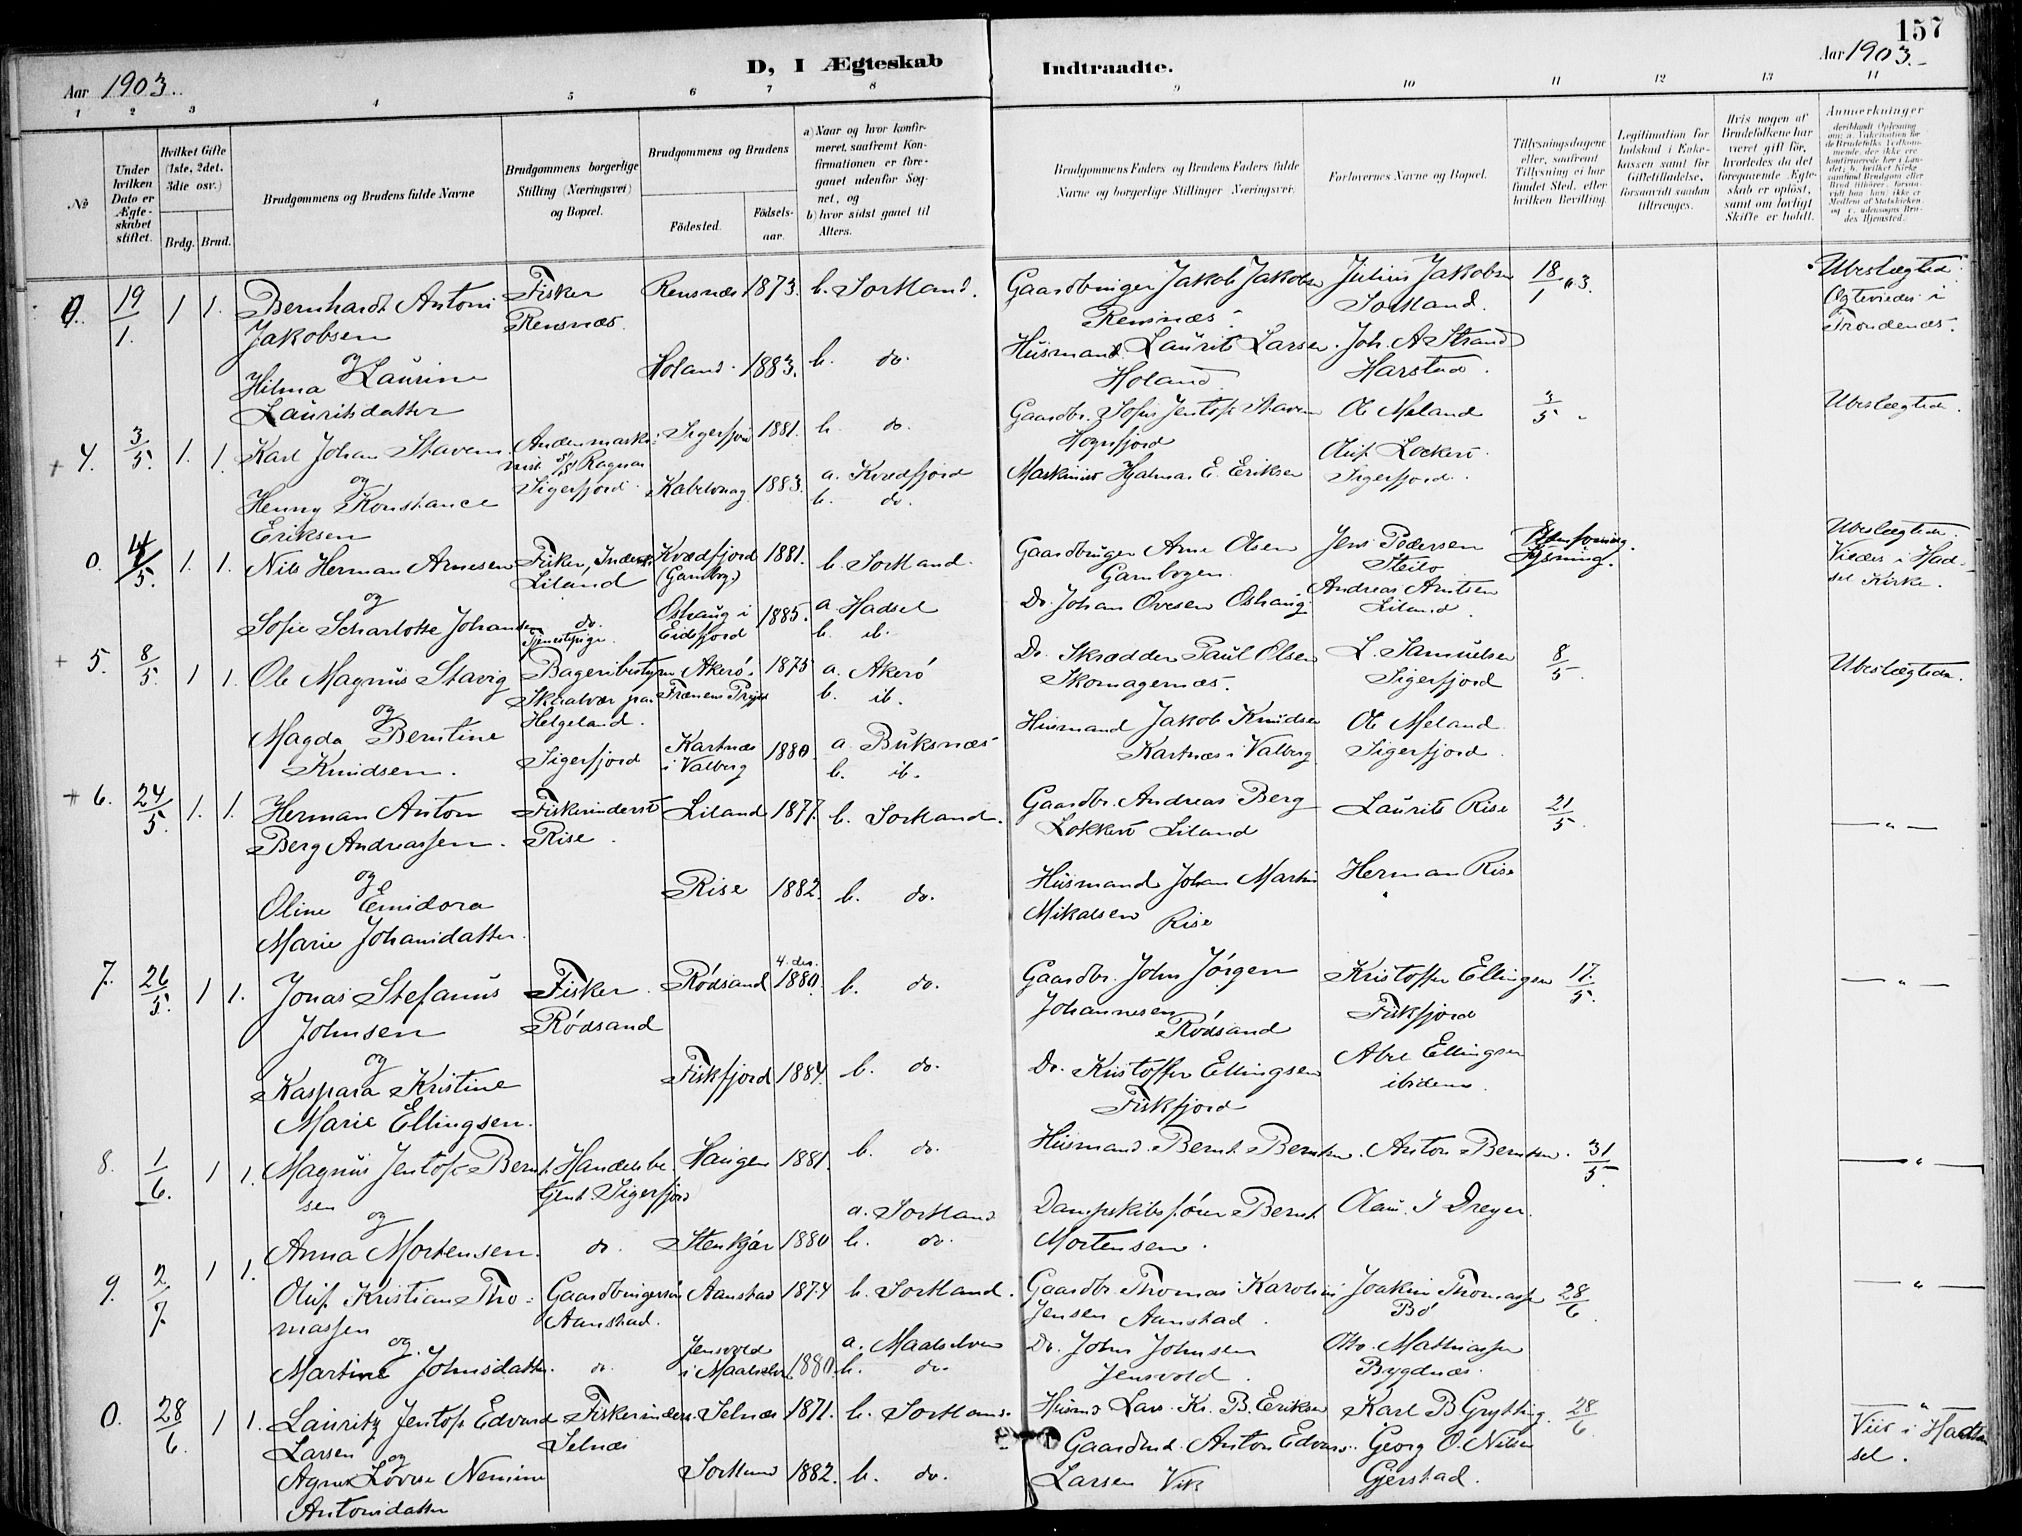 157
Aar 1903.
D, I Ægteskab
Indtraadte.
Aar 1903.
1 2 3 4 5 6 7 8 9 10 11 12 13 14
No
Under hvilken Dato er Ægteskabet stiftet.
Hvilket Gifte (1ste, 2det, 3die osv.)
Brdg. Brud.
Brudgommens og Brudens fulde Navne
Brudgommens borgerlige Stilling (Næringsvei) og Bopæl.
Brudgommens og Brudens
Fødested. Fødselsaar.
a) Naar og hvor konfirmeret, saafremt Konfirmationen er foregaaet udenfor Sognet, og
b) hvor sidst gaaet til Alters.
Brudgommens Faders og Brudens Faders fulde Navne og borgerlige Stillinger Næringsvei.
Forlovernes Navne og Bopæl.
Tillysningsdagene eller, saafremt Tillysning ei har fundet Sted, efter hvilken Bevilling.
Legitimation for Indskud i Enkekassen samt for Giftetilladelse, forsaavidt saadan tiltrænges.
Hvis nogen af Brudefolkene har været gift før, hvorledes da det foregaaende Ægteskab er opløst, samt om lovligt Skifte er holdt.
Anmerkninger
0. 19/1. 1 1. Bernhardt Antoni Fisker Rensnæs 1873. b. Sortland. Gaardbruger Jakob Jakobsen Julius Jakobsen 18/1 03. Ubeslægtede.
Jakobsen Rensnæs. Rensnæs. Sortland. Ægtevies i
og Trondenæs.
Hilma Laurine Holand. 1883. b. do. Husmand Laurits Larsen. Joh. A Strand
Lauritsdatter Holand. Harstad.
4. 3/5. 1. 1. Karl Johan Stavem Andenmaskinist S/S Ragnar Sigerfjord 1881. b. do. Gaardbr. Sofus Jentoft Stavem Ole Meland 3/5 Ubeslægtede.
og Sigerfjord. Hognfjord Oluf Lockerö.
Henny Konstance Kabelvaag 1883. a. Kvædfjord Maskinist Hjalmar E. Eriksen Sigerfjord.
Eriksen b. do.
0. 4/5. 1. 1. Nils Herman Arnesen Fisker, Inderst Kvædfjord 1881. b. Sortland. Gaardbruger Arne Olsen Jens Pedersen Ubeslægtede.
Liland (Gambog.) Gambogen. Steilo Lysning. Viedes i Hadsel Kirke.
og
Sofie Scharlotte Johansen do. Oshaug i 1885. a. Hadsel Do. Johan Ovesen Oshaug. Andreas Arntsen
Tjenestepige. Eidsfjord b. ib. Liland.
5. 8/5. 1 1. Ole Magnus Stavig Bageribestyrer Akerö. 1875 a. Akerö Do. Skrædder Paul Olsen L. Samuelsen 8/5. Ubeslægtede.
Skaalvær paa Frænens Prgjd b. ib. Skomagernæs. Sigerfjord
og Helgeland.
Magda Berntine Sigerfjord Kartnæs 1880. a. Buksnæs Husmand Jakob Knudsen Ole Meland
Knudsen. i Valberg b. ib. Kartnæs i Valberg Sigerfjord.
6. 24/5. 1. 1. Herman Anton Fisker inderst Liland 1877. b. Sortland. Gaardbr. Andreas Berg Laurits Rise 21/5. — " —
Berg Andreassen. Rise. Lokkerö Liland
og
Oline Emidora Rise 1882. b. do. Husmand Johan Martin Herman Rise
Marie Johansdatter. Mikalsen Rise
7. 26/5. 1 1. Jonas Stefanus Fisker. Rødsand 4. des. 1880. b. do. Gaardbr. John Jørgen Kristoffer Ellingsen 17/5. — " —
Johnsen Rødsand Johannesen Rødsand Fiskfjord
og
Kaspara Kristine Fiskfjord 1884. b. do. Do. Kristoffer Ellingsen Abel Ellingsen
Marie Ellingsen. Fiskfjord ibidem.
8. 1/6. 1 1. Magnus Jentoft Berntsen Handelsbetjent. Sigerfjord Haugen 1881. b. do. Husmand Bernt Berntsen. Anton Berntsen. 31/5. — " —
og a. Sortland Dampskibsfører Bernt Olau. J Dreyer.
Anna Mortensen. do. Stenkjær 1880 b. do. Mortensen.
9. 2/7. 1 1. Oluf Kristian Thomassen Gaardbrugersøn Aanstad 1874 b. Sortland. Gaardbr. Thomas Karolius Joakim Thomassen 28/6. — " —
Aanstad. Jensen Aanstad. Bø
og. Jensvold a. Maalselven Do. John Johnsen Otto. Mathiassen
Martine Johnsdatter. do. i Maalselv. 1880. b. do. Jensvold. Bygdnæs.
0. 28/6. 1 1. Lauritz Jentoft Edvard Fisker inders. Selnæs 1871. b. Sortland. Husmd Lars Kr. B. Eriksen Karl B Grytting. 28/6 — " —
Larsen Selnæs Gaardmd. Anton Edvard. Georg O. Nilsen Vies i Hadsel.
og
Agnes Lovise Nemine Sortland 1882. b. do. Larsen Vik Gjerstad.
Antonsdatter